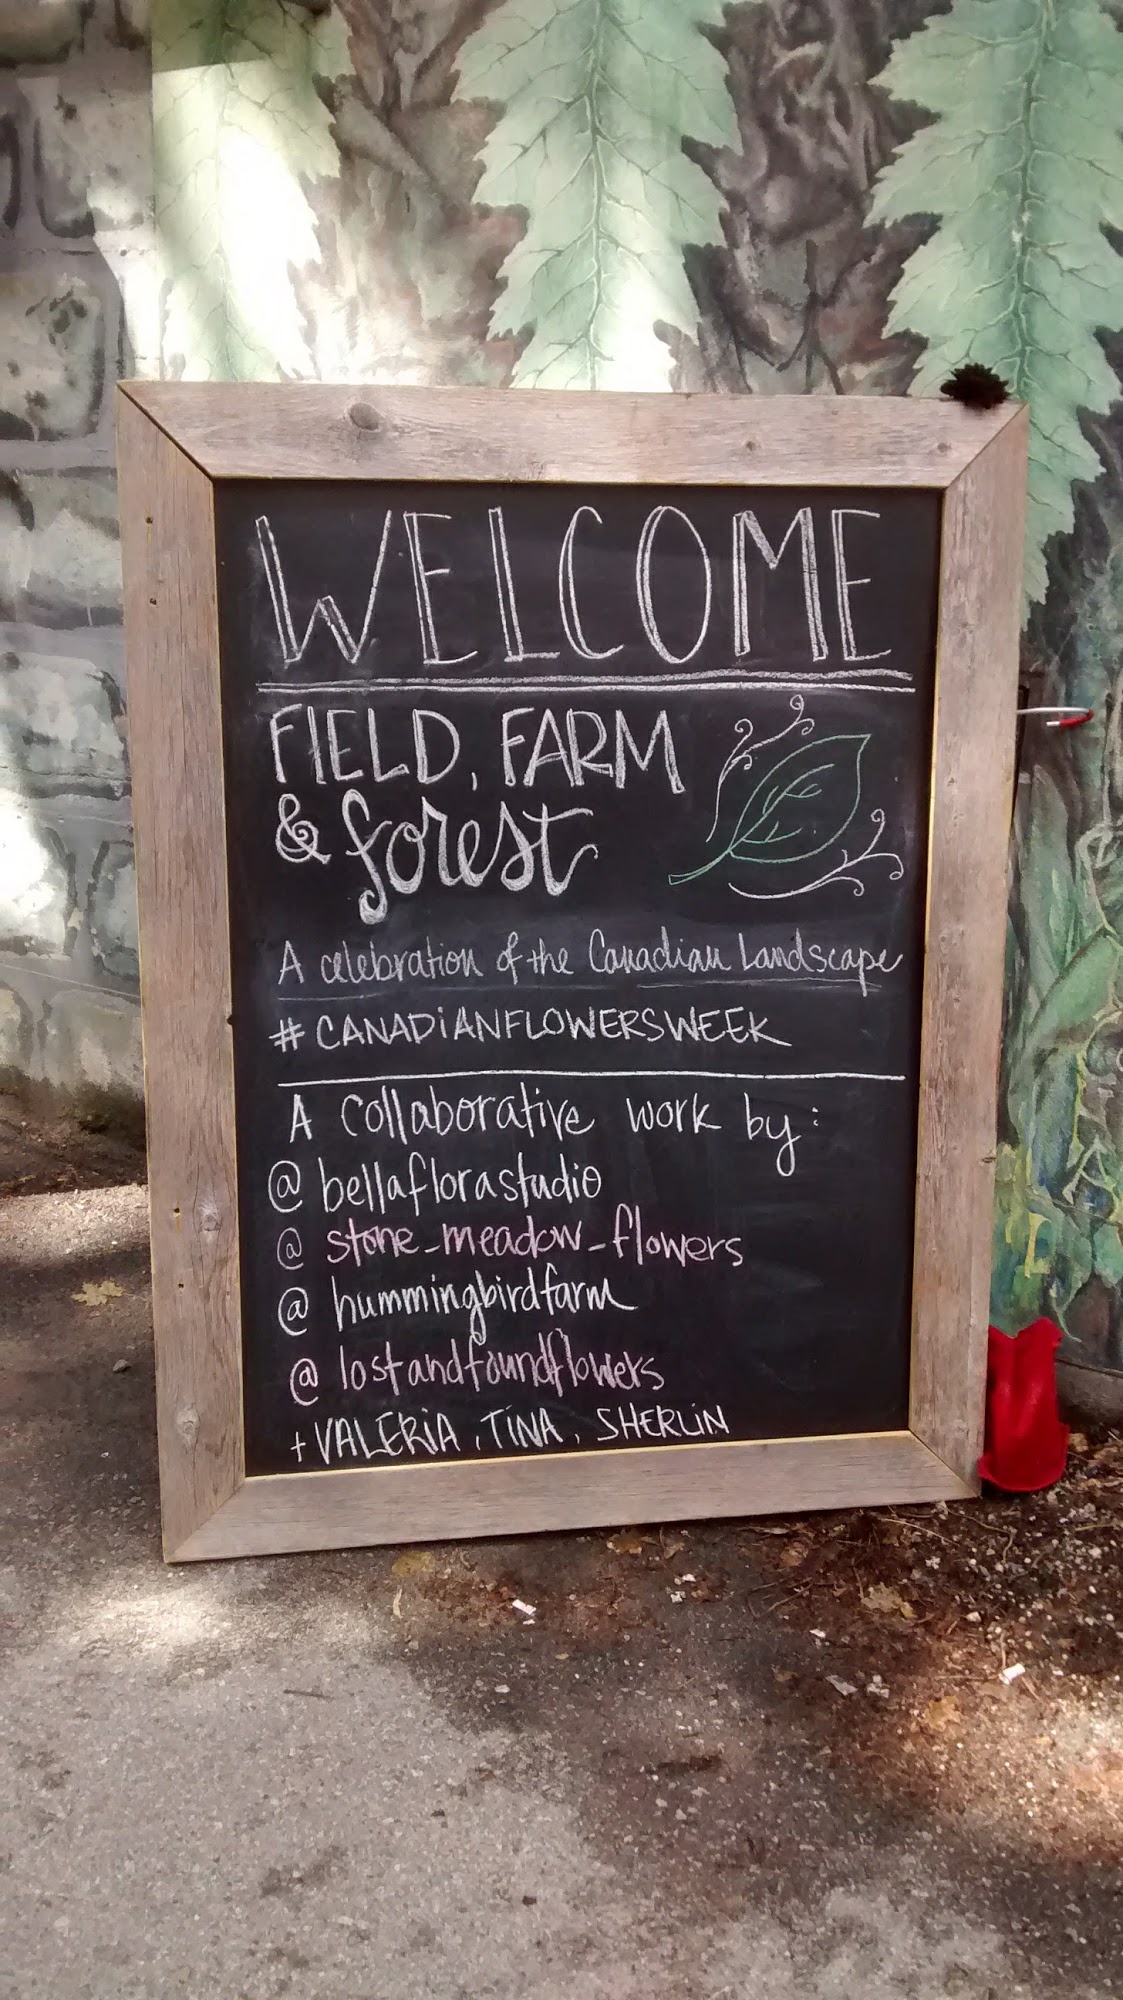 WELCOME
FIELD, FARM
& forest
A celebration of the Canadian Landscape
#CANADIANFLOWERSWEEK
A collaborative work by:
@bellaflorastudio
@stone_meadow_flowers
@hummingbirdfarm
@lostandfoundflowers
+ VALERIA, TINA, SHERLIN